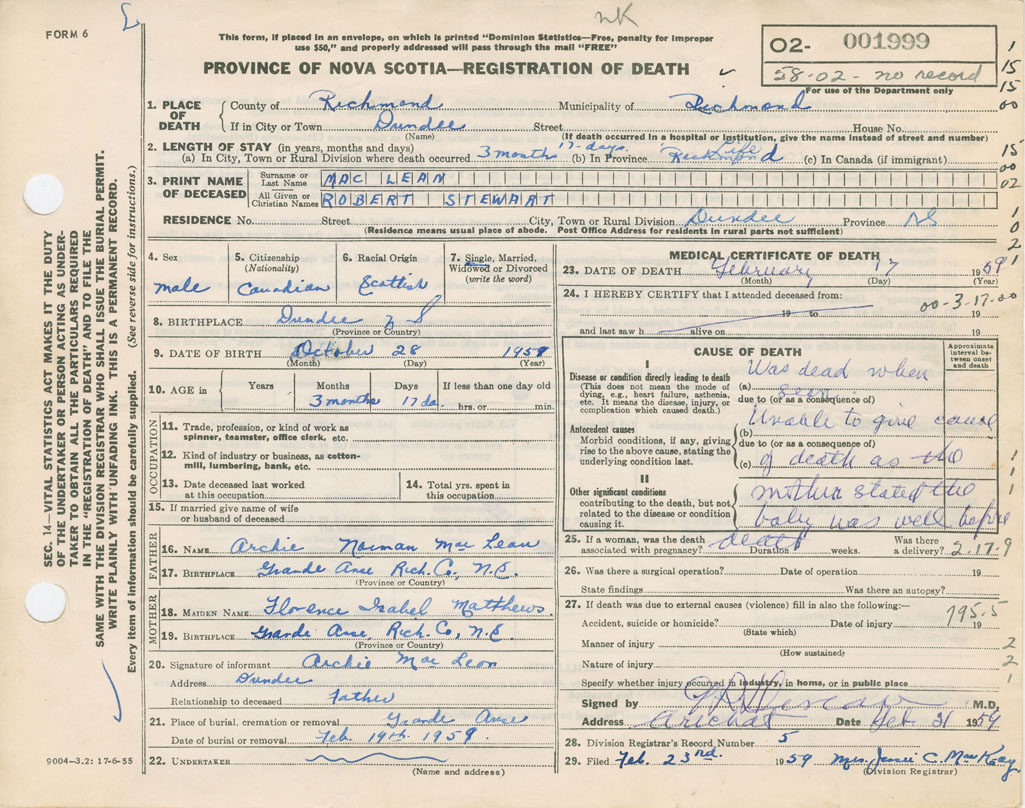 nK
FORM 6
This form, if placed in an envelope, on which is printed "Dominion Statistics—Free, penalty for improper
use $50," and properly addressed will pass through the mail "FREE"
O2- 001999
58-02 - no record
For use of the Department only
PROVINCE OF NOVA SCOTIA—REGISTRATION OF DEATH
1
15
15
00
15
00
02
1
0
2
1. PLACE OF DEATH
County of Richmond Municipality of Richmond
If in City or Town Dundee Street House No.
(Name) (If death occurred in a hospital or institution, give the name instead of street and number)
2. LENGTH OF STAY (in years, months and days)
(a) In City, Town or Rural Division where death occurred 3 months 17 days (b) In Province Life Richmond (c) In Canada (if immigrant)
3. PRINT NAME OF DECEASED
Surname or Last Name MAC LEAN
All Given or Christian Names ROBERT STEWART
RESIDENCE No. Street City, Town or Rural Division Dundee Province NS
(Residence means usual place of abode. Post Office Address for residents in rural parts not sufficient)
4. Sex
male
5. Citizenship
(Nationality)
Canadian
6. Racial Origin
Scottish
7. Single, Married,
Widowed or Divorced
(write the word)
8. BIRTHPLACE Dundee N S
(Province or Country)
9. DATE OF BIRTH October 28 1958
(Month) (Day) (Year)
10. AGE in Years Months Days If less than one day old
3 months 17 da. hrs. or min.
OCCUPATION
11. Trade, profession, or kind of work as
spinner, teamster, office clerk, etc.
12. Kind of industry or business, as cotton-
mill, lumbering, bank, etc.
13. Date deceased last worked
at this occupation
14. Total yrs. spent in
this occupation
15. If married give name of wife
or husband of deceased
FATHER
16. NAME Archie Norman Mac Lean
17. BIRTHPLACE Grande Anse Rich. Co, N.S.
(Province or Country)
MOTHER
18. MAIDEN NAME Florence Isabel Matthews
19. BIRTHPLACE Grande Anse, Rich. Co, N.S.
(Province or Country)
20. Signature of informant Archie Mac Lean
Address Dundee
Relationship to deceased Father
21. Place of burial, cremation or removal Grande Anse
Date of burial or removal Feb. 19th. 1959.
22. UNDERTAKER
(Name and address)
MEDICAL CERTIFICATE OF DEATH
23. DATE OF DEATH February 17 1959
(Month) (Day) (Year)
24. I HEREBY CERTIFY that I attended deceased from: 00-3-17-00
19 to 19
and last saw h alive on 19
CAUSE OF DEATH
Approximate
interval be-
tween onset
and death
I
Disease or condition directly leading to death
(This does not mean the mode of
dying, e.g., heart failure, asthenia,
etc. It means the disease, injury, or
complication which caused death.)
(a) Was dead when
seen
due to (or as a consequence of)
Antecedent causes
Morbid conditions, if any, giving
rise to the above cause, stating the
underlying condition last.
Unable to give cause
(b)
due to (or as a consequence of)
(c) of death as the
II
Other significant conditions
contributing to the death, but not
related to the disease or condition
causing it.
mother stated the
baby was well before
death
25. If a woman, was the death
associated with pregnancy? Duration weeks. Was there
a delivery? 2.17.9
26. Was there a surgical operation? Date of operation 19
State findings Was there an autopsy?
27. If death was due to external causes (violence) fill in also the following:—
Accident, suicide or homicide? Date of injury 19
795.5
(State which)
Manner of injury
(How sustained)
Nature of injury
Specify whether injury occurred in industry, in home, or in public place
1
1
1
9
2
2
1
Signed by M.D.
Address Arichat Date Feb 21 1959
28. Division Registrar's Record Number 5
29. Filed Feb. 23rd. 1959 Mrs. Jessie C. Mac Kay
(Division Registrar)
SEC. 14—VITAL STATISTICS ACT MAKES IT THE DUTY
OF THE UNDERTAKER OR PERSON ACTING AS UNDER-
TAKER TO OBTAIN ALL THE PARTICULARS REQUIRED
IN THE "REGISTRATION OF DEATH" AND TO FILE THE
SAME WITH THE DIVISION REGISTRAR WHO SHALL ISSUE THE BURIAL PERMIT.
WRITE PLAINLY WITH UNFADING INK. THIS IS A PERMANENT RECORD.
Every item of information should be carefully supplied. (See reverse side for instructions.)
9004—3.2: 17-6-55